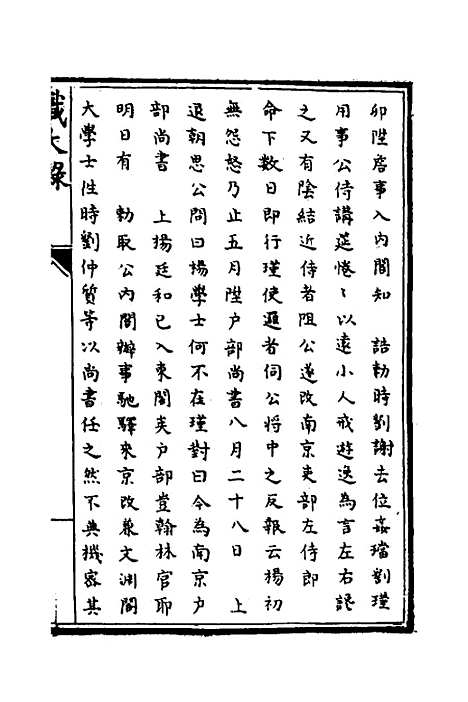 卯陞詹事入內閣知　誥勅時劉謝去位姦璫劉瑾
用事公侍講筵惓〻以遠小人戒遊逸為言左右諗
之又有陰結近侍者阻公遂改南京吏部左侍郎
命下數日即行瑾使邏者伺公將中之反報云楊初
無怨怒乃止五月陞户部尚書八月二十八日　上
退朝思公問曰楊學士何不在瑾對曰今為南京户
部尚書　上楊廷和已入東閣矣户部豈翰林官耶
明日有　勅取公內閣辦事馳驛來京改兼文淵閣
大學士性時劉仲質等以尚書任之然不典機密其
識大錄